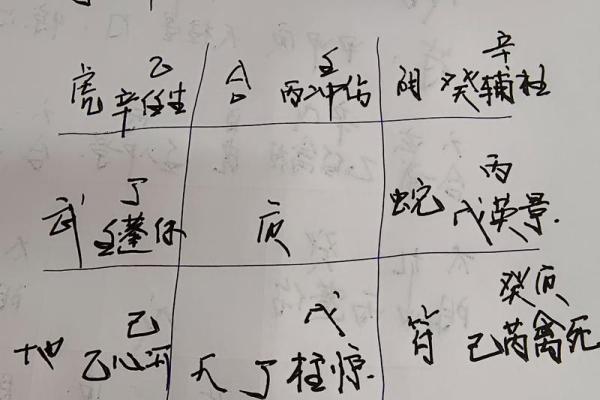 乙 壬 辛
虎 辛任生 合 丙冲伤 阴 癸辅杜
丁 丙
武 壬蓬休 庚 蛇 戊英景.
己 戊 癸庚
地 乙心开 天 丁柱惊. 符 己芮禽死